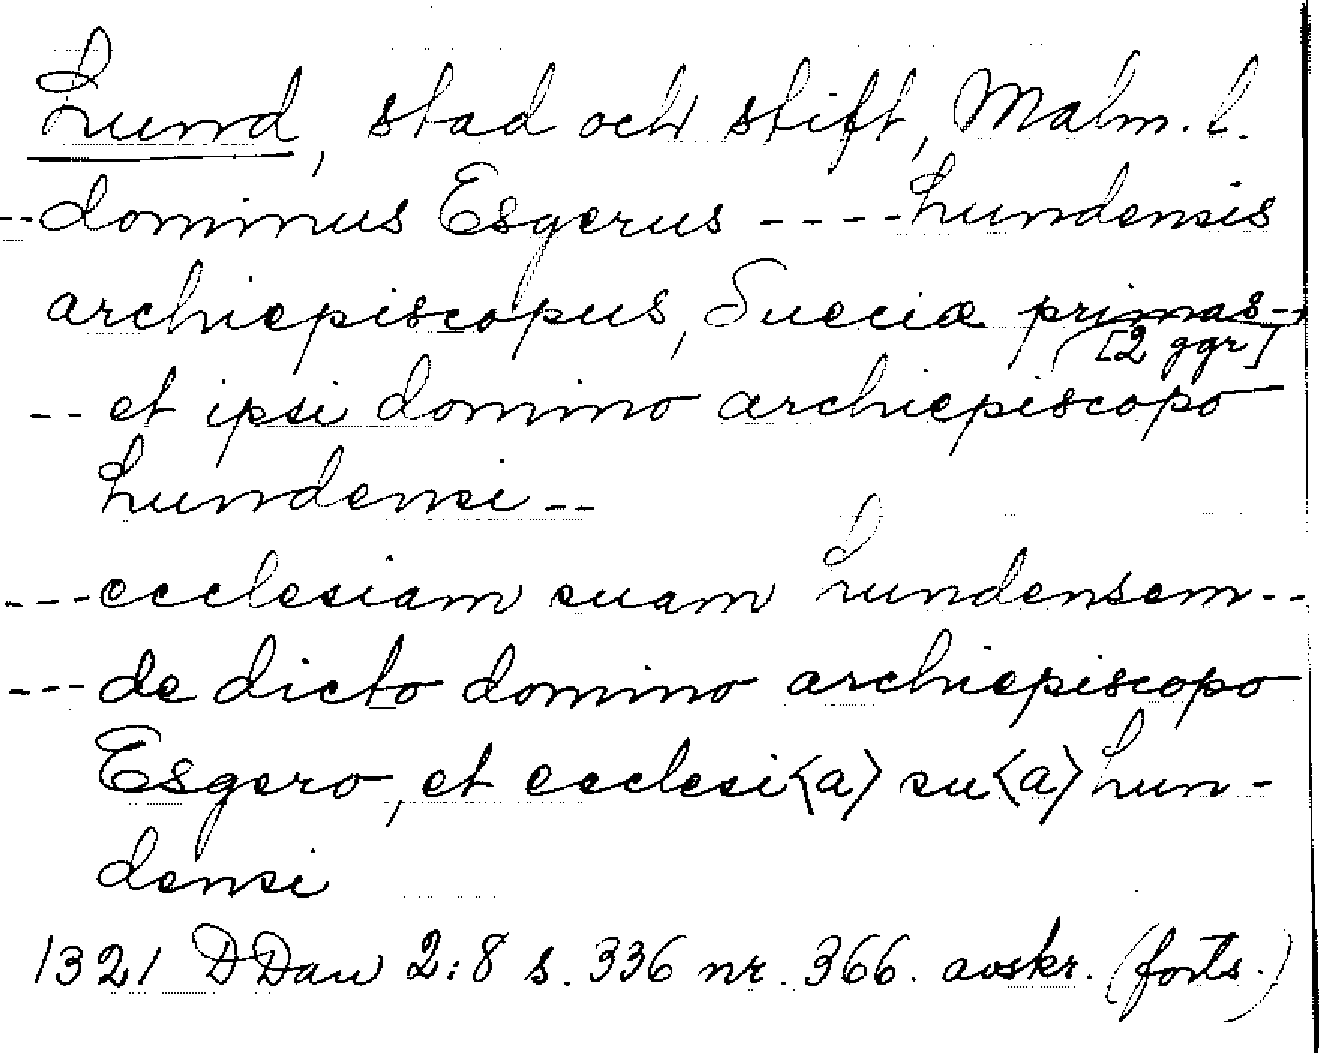 Lund, stad och stift, Malm. l.
--dominus Esgerus ----Lundensis
archiepiscopus, Sueciæ primas--
[2 ggr]
-- et ipsi domino archiepiscopo
Lundensi --
---ecclesiam suam Lundensem--
---de dicto domino archiepiscopo
Esgero, et ecclesi<a> su<a> Lun-
densi
1321 DDan 2:8 s. 336 nr. 366. avskr. (forts.)